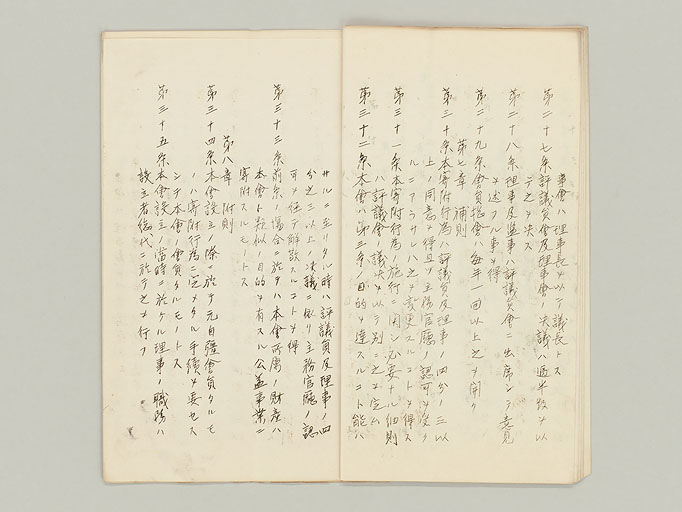 事會ハ理事長ヲ以テ議長トス
第二十七条評議員會及理事會ノ決議ハ過半数ヲ以
テ之ヲ決ス
第二十八条理事及監事ハ評議員會ニ出席シテ意見
ヲ述フル事ヲ得
第二十九条會員總會ハ毎年一回以上之ヲ開ク
第七章 補則
第三十条本寄附行為ハ評議員及理事ノ四分ノ三以
上ノ同意ヲ得且ツ主務官廳ノ認可ヲ受ク
ルニアラサレハ之ヲ変更スルコトヲ得ス
第三十一条本寄附行為ノ施行ニ関シ必要ナル細則
ハ評議會ノ議決ヲ以テ別ニ之ヲ定ム
第三十二条本會ハ第三条ノ目的ヲ達スルコト能ハ
サルニ至リタル時ハ評議員及理事ノ四
分之三以上ノ決議ニ依リ主務官廳ノ認
可ヲ経テ解散スルコトヲ得
第三十三条前条ノ場合ニ於テハ本會所属ノ財産ハ
本會ト類似ノ目的ヲ有スル公益事業ニ
寄附スルモノトス
第八章 附則
第三十四条本會設立ノ際ニ於テ元自彊會員タルモ
ノハ寄附行為ニ定メタル手續ヲ要セス
シテ本會ノ會員タルモノトス
第三十五条本會設立ノ當時ニ於ケル理事ノ職務ハ
設立者總代ニ於テ之ヲ行フ